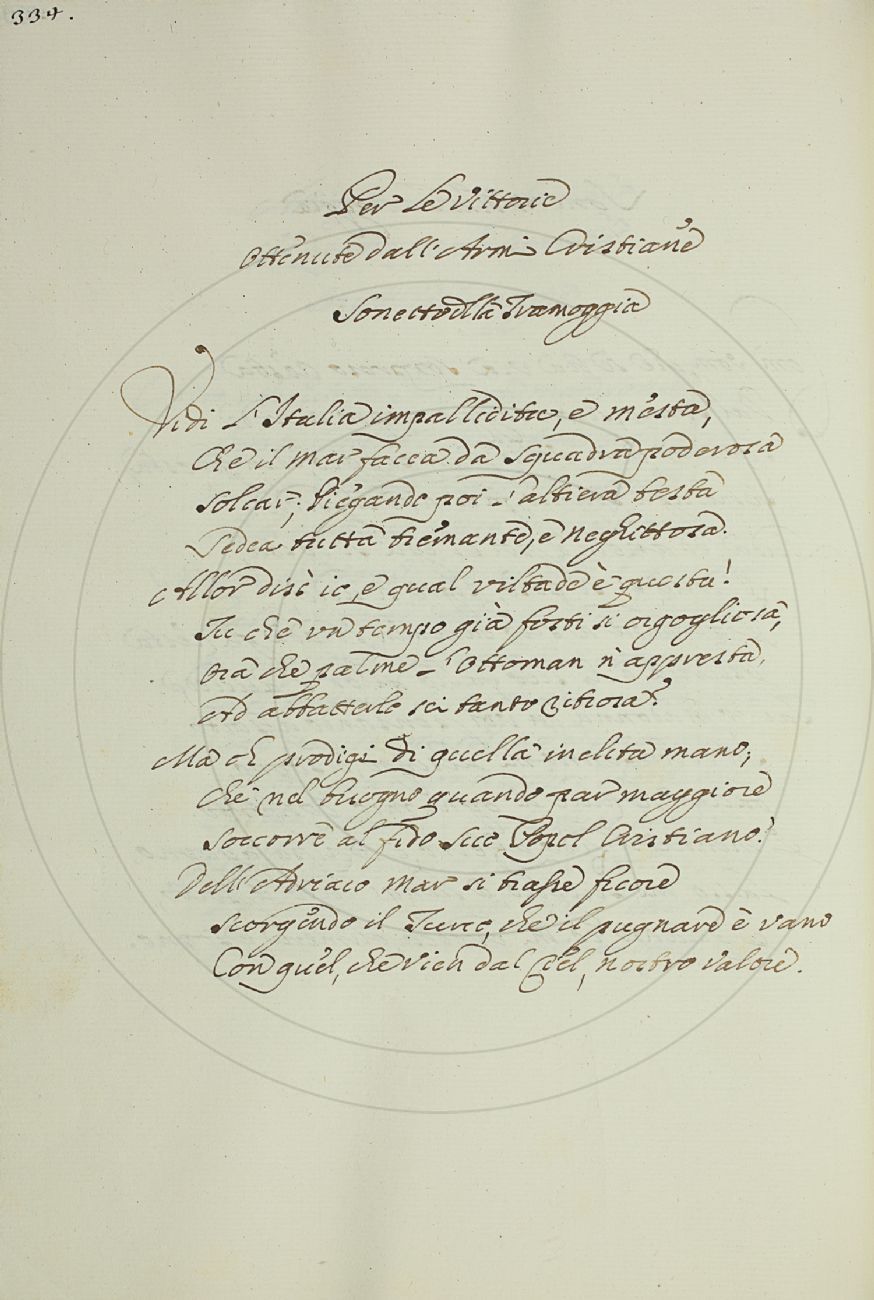 334.
Per le Vittorie
Ottenute dall'Armi Cristiane
Sonetto della Tramoggia
Vidi l'Italia impallidita, e mesta,
Che il mar facea da squadra poderosa
solcar; Piegando poi l'altiera testa
Sedea tutta tremante, e neghittosa.
Allor diss'io, e qual viltade è questa!
Tu che un tempo già fosti sì orgogliosa,
Ora che palme l'Ottoman n'appresta,
Ad abbatterlo sei tanto ritrosa?
Ma oh prodigi di quella inclita mano,
Che nel bisogno quando par maggiore
soccorre al fido suo Popol Cristiano!
Dell'Adriaco mar si trasse fuore
scorgendo il Turco, che il pugnare è vano
Con quel, che vien dal Ciel, nostro valore.